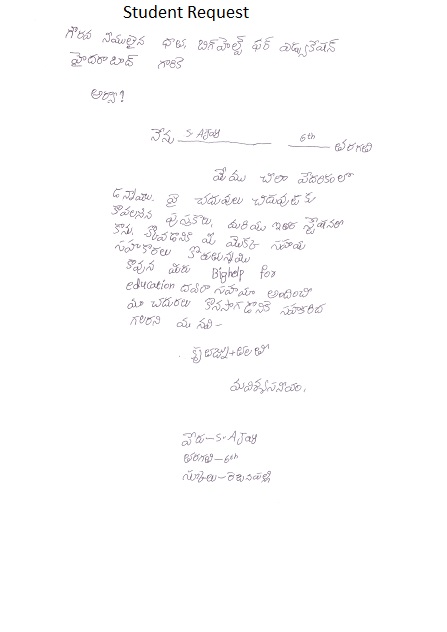 Student Request
గౌరవ నీయులైన దాత, బిగ్‌హెల్ప్ ఫర్ ఎడ్యుకేషన్
హైదరాబాద్ గారికి
ఆర్యా!
నేను S. Ajay 6th తరగతి
మేము చాలా పేదరికంలో
ఉన్నాము. పై చదువులు చదువుటకు
కావలసిన పుస్తకాలు, మరియు ఇతర
మీ యొక్క సహాయ
సహకారాలు కోరుతున్నాము
కావున మీరు Bighelp for
education ద్వారా సహాయం అందించి
మా చదువులు కొనసాగడానికి సహకరించ
గలరని మనవి-
కృతజ్ఞతలతో
మీ విశ్వసనీయం.
పేరు-S. Ajay
తరగతి-6th